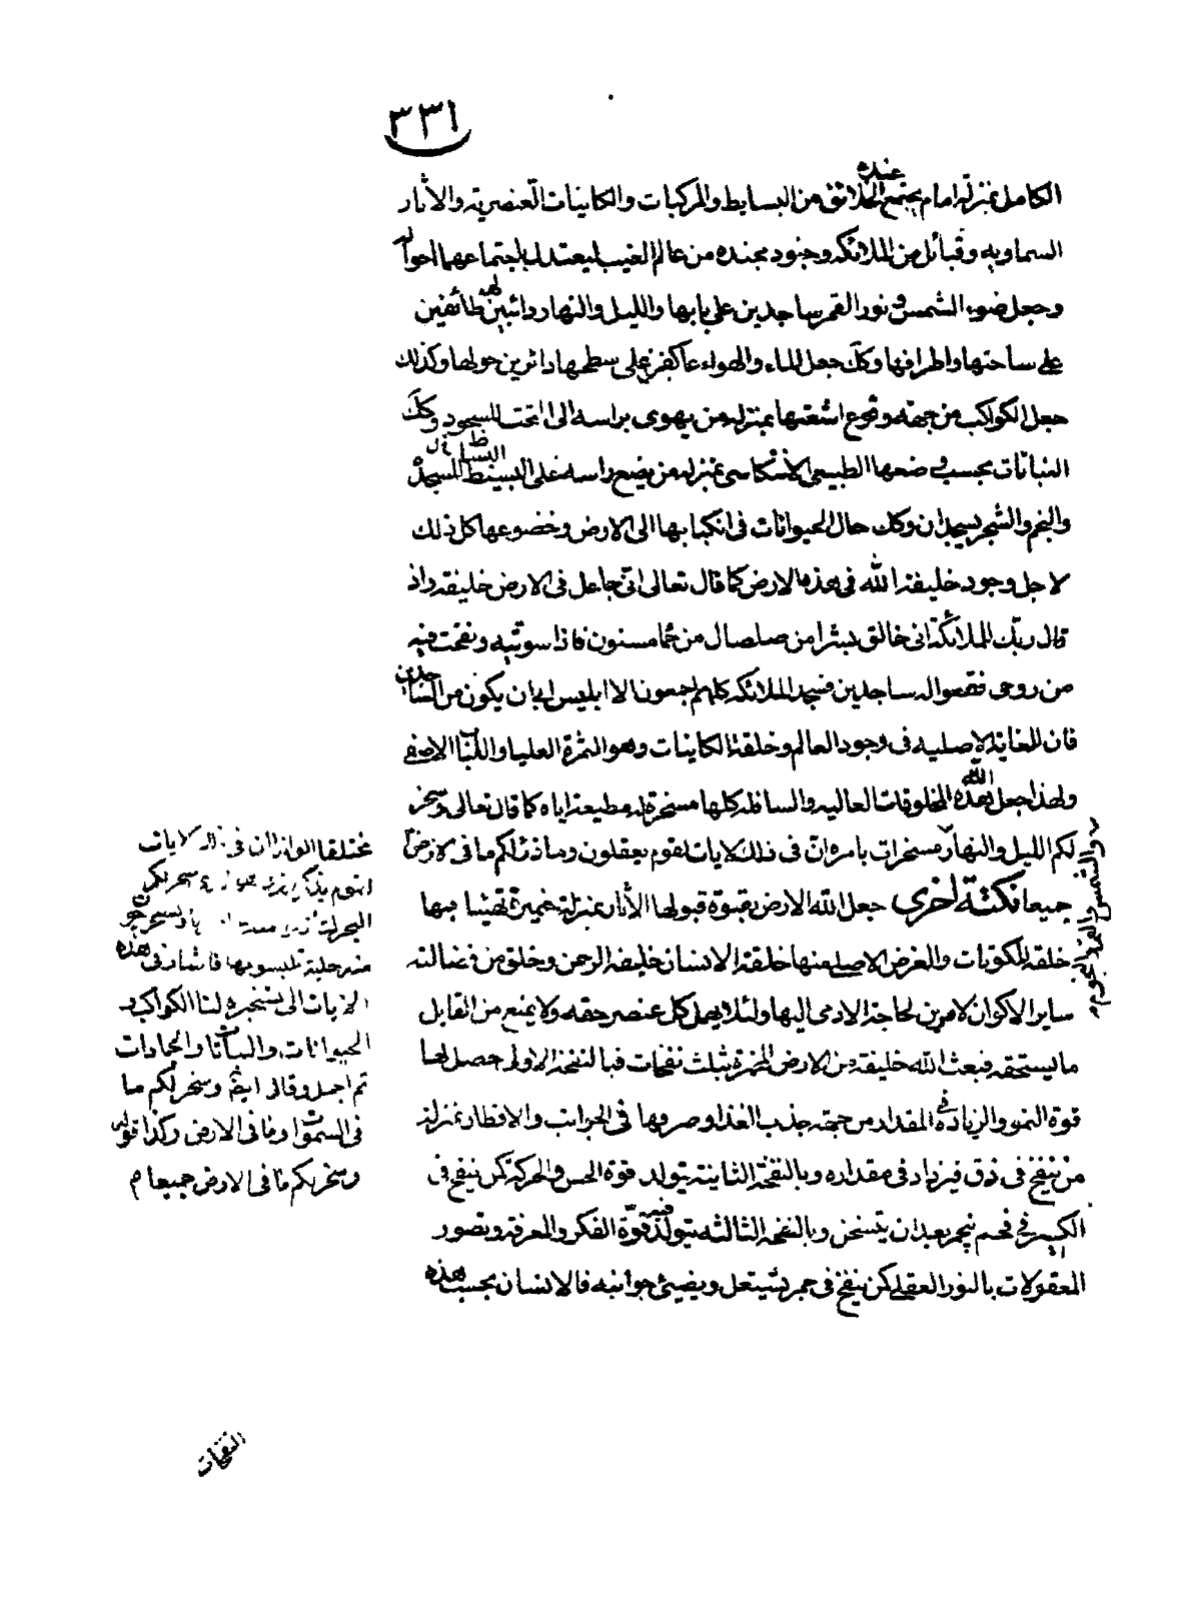 ٣٣١
الكامل بمنزلة امام يجتمع عنده الخلائق من البسايط والمركبات والكاينات العنصرية والاثار
السماويه وقبائل من الملائكه وجنود مجنده من عالم الغيب ليعتدل باجتماعهما احواله
وجعل ضوء الشمس ونور القمر ساجدين على بابها والليل والنهار دائبين لها طائفين
على ساحتها واطرافها وكك جعل الماء والهواء عاكفين على سطحها دائرين حولها وكذلك
جعل الكواكب من جهة وقوع اشعتها بمنزلة من يهوى براسه الى التحت للسجود وكك
النباتات بحسب وضعها الطبيعى الانتكاسى بمنزلة من يضع راسه على البسيط للسجدة
والنجم والشجر يسجدان وكك حال الحيوانات فى انكبابها الى الارض وخضوعها كل ذلك
لاجل وجود خليفة الله فى هذه الارض كما قال تعالى انى جاعل فى الارض خليفة واذ
قال ربك للملائكة انى خالق بشرا من صلصال من حمأ مسنون فاذا سويته ونفخت فيه
من روحى فقعوا له ساجدين فسجد الملائكه كلهم اجمعون الا ابليس ابى ان يكون من الساجدين
فان الغاية الاصليه فى وجود العالم وخلقة الكاينات وهو الثمرة العليا واللباب الاصفى
ولهذا جعل الله هذه المخلوقات العاليه والسافله كلها مسخرة له مطيعة اياه كما قال تعالى وسخر
لكم الليل والنهار مسخرات بامره ان فى ذلك لايات لقوم يعقلون وما ذرا لكم ما فى الارض
جميعا نكتة اخرى جعل الله الارض بقوة قبولها الاثار بمنزلة خميرة تهيئا بها
خلقة المكونات والغرض الاصلى منها خلقة الانسان خليفة الرحمن وخلق من فضالته
ساير الاكوان لامرين لحاجة الادمى اليها ولئلا يهمل كل عنصر حقه ولا يمنع من القابل
ما يستحقه فبعث الله خليفة من الارض المخمرة بثلث نفخات فبالنفخة الاولى حصل لها
قوة النمو والزيادة فى المقدار من جهة جذب الغذا وصرفها فى الجوانب والاقطار بمنزلة
من ينفخ فى زق فيزداد فى مقداره وبالنفخة الثانية يتولد قوة الحس والحركة كمن ينفخ فى
الكير فى فحم يتجمر بعد ان يتسخن وبالنفخه الثالثه يتولد فيه قوة الفكر والمعرفة وتصور
المعقولات بالنور العقلى كمن ينفخ فى جمر يشتعل ويضيئ جوانبه فالانسان بحسب هذه
والشمس والقمر والنجوم
مختلفا الوانه ان فى لايات
البحر
منه حلية تلبسونها فاشار فى هذه
الايات الى تسخيره لنا الكواكب و
الحيوانات والنباتات والجمادات
ثم اجمل وقال ايضا وسخر لكم ما
فى السموات وما فى الارض وكذا قوله
وسخر لكم ما فى الارض جميعا م
النفخات